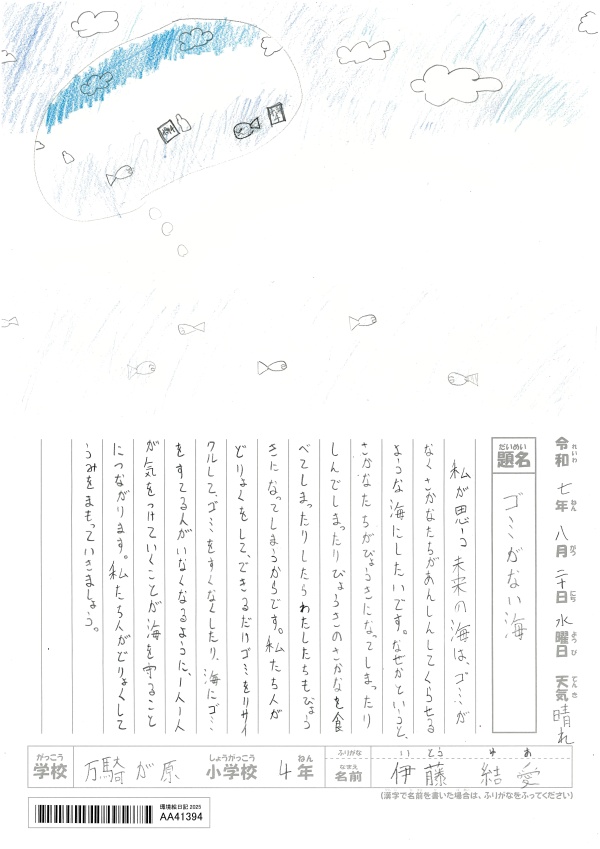 令和 七年 八月 二十日 水曜日 天気 晴れ
れいわ ねん がつ にち ようび てんき
だいめい
題名 ゴミがない海
私が思う未来の海は、ゴミが
なくさかなたちがあんしんしてくらせる
ような海にしたいです。なぜかというと、
さかなたちがびょうきになってしまったり
しんでしまったりびょうきのさかなを食
べてしまったりしたらわたしたちもびょう
きになってしまうからです。私たち人が
どりょくをして、できるだけゴミをリサイ
クルして、ゴミをすくなくしたり、海にゴミ
をすてる人がいなくなるように、一人一人
が気をつけていくことが海を守ること
につながります。私たち人がどりょくして
うみをまもっていきましょう。
がっこう しょうがっこう ねん ふりがな いとう ゆあ
学校 万騎が原 小学校 4年 なまえ 名前 伊藤 結愛
(漢字で名前を書いた場合は、ふりがなをふってください)
環境絵日記 2025
AA41394